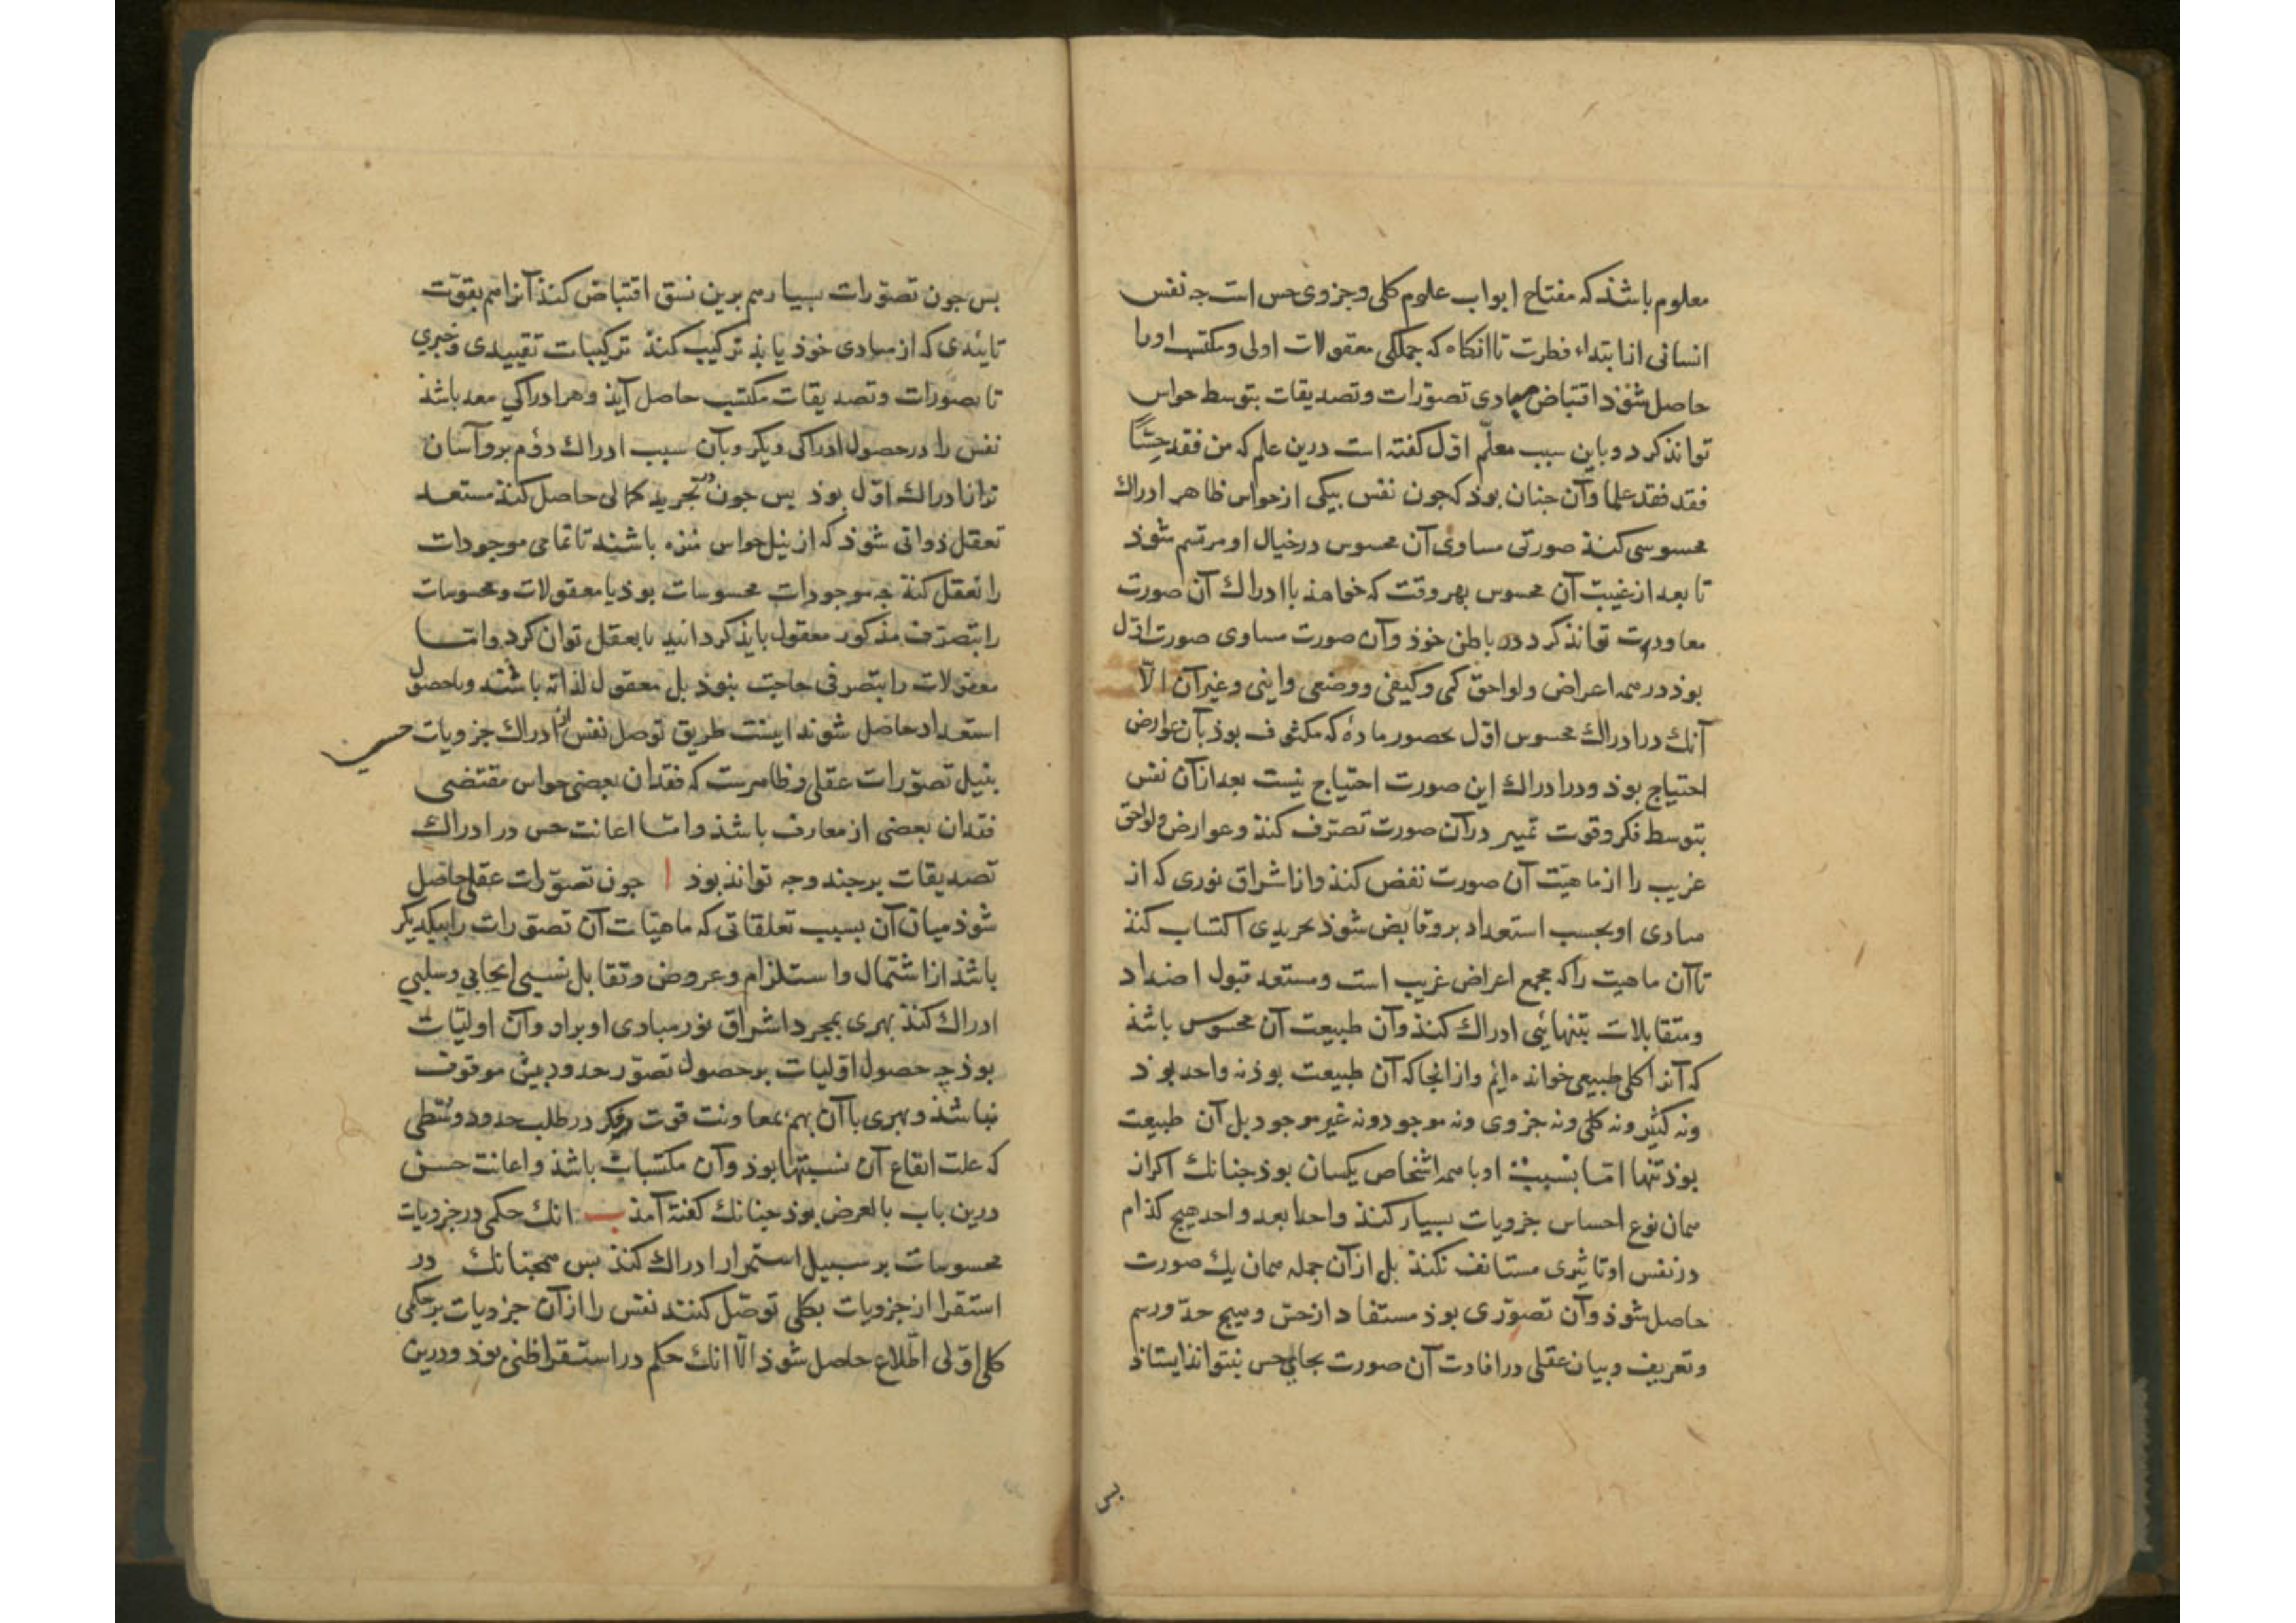 معلوم باشذ که مفتاح ابواب علوم کلی و جزوی حس است جه نفس
انسانی از ابتداء فطرت تا انکاه که جملکی معقولات اولی و مکتسب او را
حاصل شوذ اقتباض مبادی تصوّرات و تصدیقات بتوسط حواس
تواند کرد و باین سبب معلّم اوّل کفته است درین علم که من فقد حسّاً
فقد فقد علما و آن جنان بوذ که جون نفس بیکی از حواس ظاهر ادراك
محسوسی کنذ صورتی مساوی آن محسوس در خیال او مرتسم شوذ
تا بعد از غیبت آن محسوس بهر وقت که خواهذ با ادراك آن صورت
معاودت تواند کرد در باطن خوذ و آن صورت مساوی صورت اوّل
بوذ در همه اعراض و لواحق کمی و کیفی و وضعی و اینی و غیر آن الّا
آنك در ادراك محسوس اوّل بحضور ماده که مکثوف بوذ بآن عوارض
احتیاج بوذ و در ادراك این صورت احتیاج نیست بعد از آن نفس
بتوسط فکر و قوت تمییز در آن صورت تصرّف کنذ و عوارض و لواحق
غریب را از ماهیّت آن صورت نفض کنذ و از اشراق نوری که از
مبادی او بحسب استعداد برو فایض شوذ تجریدی اکتساب کنذ
تا آن ماهیت را که مجمع اعراض غریب است و مستعد قبول اضداد
و متقابلات بتنهائی ادراك کنذ و آن طبیعت آن محسوس باشذ
که آنرا کلی طبیعی خوانده ایم و از انجا که آن طبیعت بوذ نه واحد بوذ
و نه کثیر و نه کلی و نه جزوی و نه موجود و نه غیر موجود بل آن طبیعت
بوذ تنها امّا بنسبت او با همه اشخاص یکسان بوذ جنانك اکر از
همان نوع احساس جزویات بسیار کنذ واحدا بعد واحد هیج کذام
در نفس او تاثیری مستانف نکنذ بل از آن جمله همان یك صورت
حاصل شوذ و آن تصوّری بوذ مستفاد از حسّ و هیج حدّ و رسم
و تعریف و بیان عقلی در افادت آن صورت بجای حس نتواند ایستاذ
بس جون تصوّرات بسیار هم برین نسق اقتباض کنذ آنرا هم بقوّت
تایّدی که از مبادی خوذ یابذ ترکیب کنذ ترکیبات تقییدی و خبری
تا تصوّرات و تصدیقات مکتسب حاصل آیذ و هر ادراکی معد باشذ
نفس را در حصول ادراکی دیکر و بآن سبب ادراك دوّم برو آسان
تر از ادراك اوّل بوذ بس جون در تجرید کمالی حاصل کنذ مستعد
تعقل ذواتی شوذ که از نیل حواس منزه باشند تا تمامی موجودات
را تعقل کنذ جه موجودات محسوسات بوذ یا معقولات و محسوسات
را بتصرّف مذکور معقول بایذ کردانید تا تعقل توان کرد و امّا
معقولات را بتصرفی حاجت نبوذ بل معقول لذاته باشند و با حصول
استعداد حاصل شوند اینست طریق توصل نفس از ادراك جزویات حسی
بنیل تصوّرات عقلی و ظاهرست که فقدان بعضی حواس مقتضی
فقدان بعضی از معارف باشذ و امّا اعانت حس در ادراك
تصدیقات بر جند وجه تواند بوذ ا جون تصوّرات عقلی حاصل
شوذ میان آن بسبب تعلقاتی که ماهیّات آن تصوّرات را بیکدیکر
باشذ از اشتمال و استلزام و عروض و تقابل نسبی ایجابی و سلبی
ادراك کنذ بهری بمجرد اشراق نور مبادی او برو و آن اولیّات
بوذ جه حصول اوّلیات بر حصول تصوّر حدود بیش موقوف
نباشذ و بهری با آن بهم بمعاونت قوت فکر در طلب حدود وسطی
که علت ایقاع آن نسبتها بوذ و آن مکتسبات باشذ و اعانت حس
درین باب بالعرض بوذ جنانك کفته آمذ ب انك حکمی در جزویات
محسوسات بر سبیل استمرار ادراك کنذ بس همجنانك در
استقرا از جزویات بکلی توصّل کنند نفس را از آن جزویات بر حکمی
کلی اوّلی اطّلاع حاصل شوذ الّا انك حکم در استقرا ظنی بوذ و درین